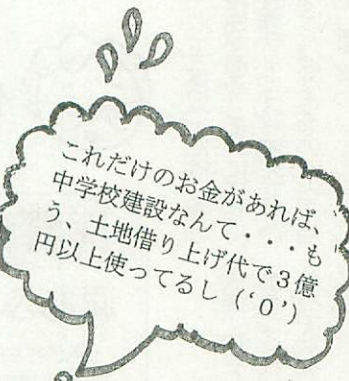 これだけのお金があれば、
中学校建設なんて・・・も
う、土地借り上げ代で３億
円以上使ってるし（‘０’）